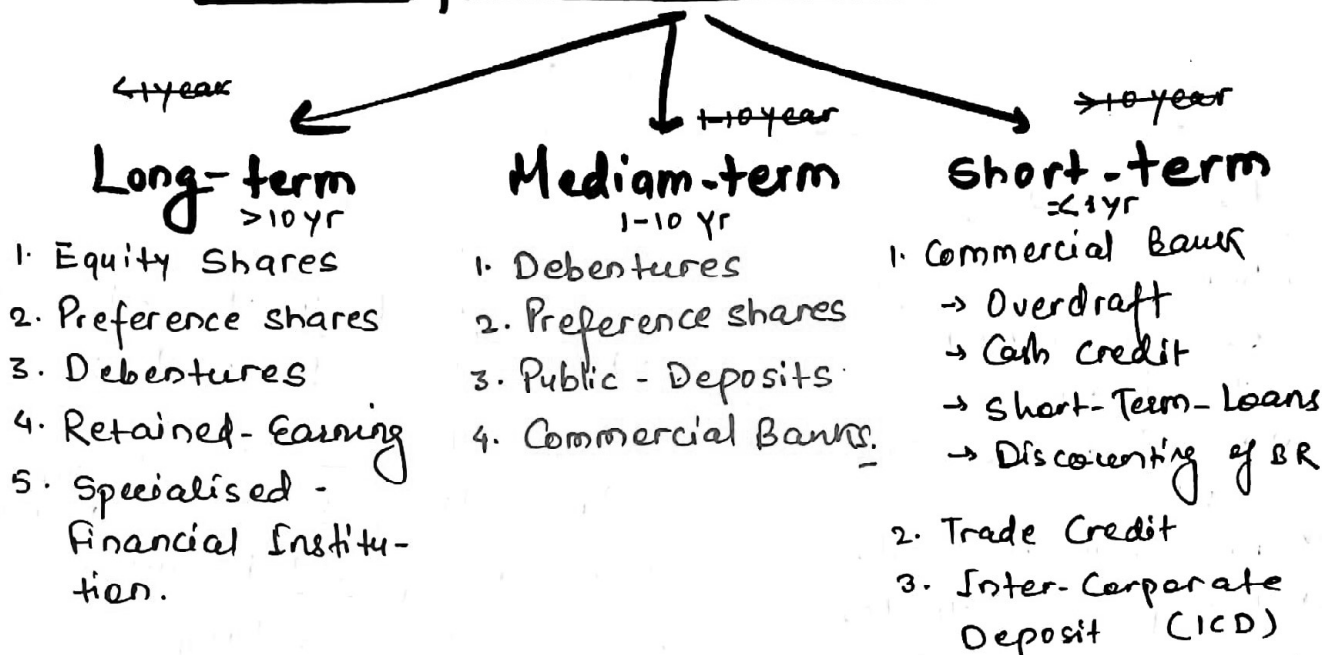 <1year
1-10 year
>10 year
Long-term
>10 yr
1. Equity Shares
2. Preference shares
3. Debentures
4. Retained-Earning
5. Specialised -
Financial Institu-
tion.
Mediam-term
1-10 Yr
1. Debentures
2. Preference shares
3. Public - Deposits
4. Commercial Banks.
Short-term
=<1yr
1. Commercial Bank
→ Overdraft
→ Cash credit
→ Short-Term-Loans
→ Discounting of BR
2. Trade Credit
3. Inter-Corporate
Deposit (ICD)